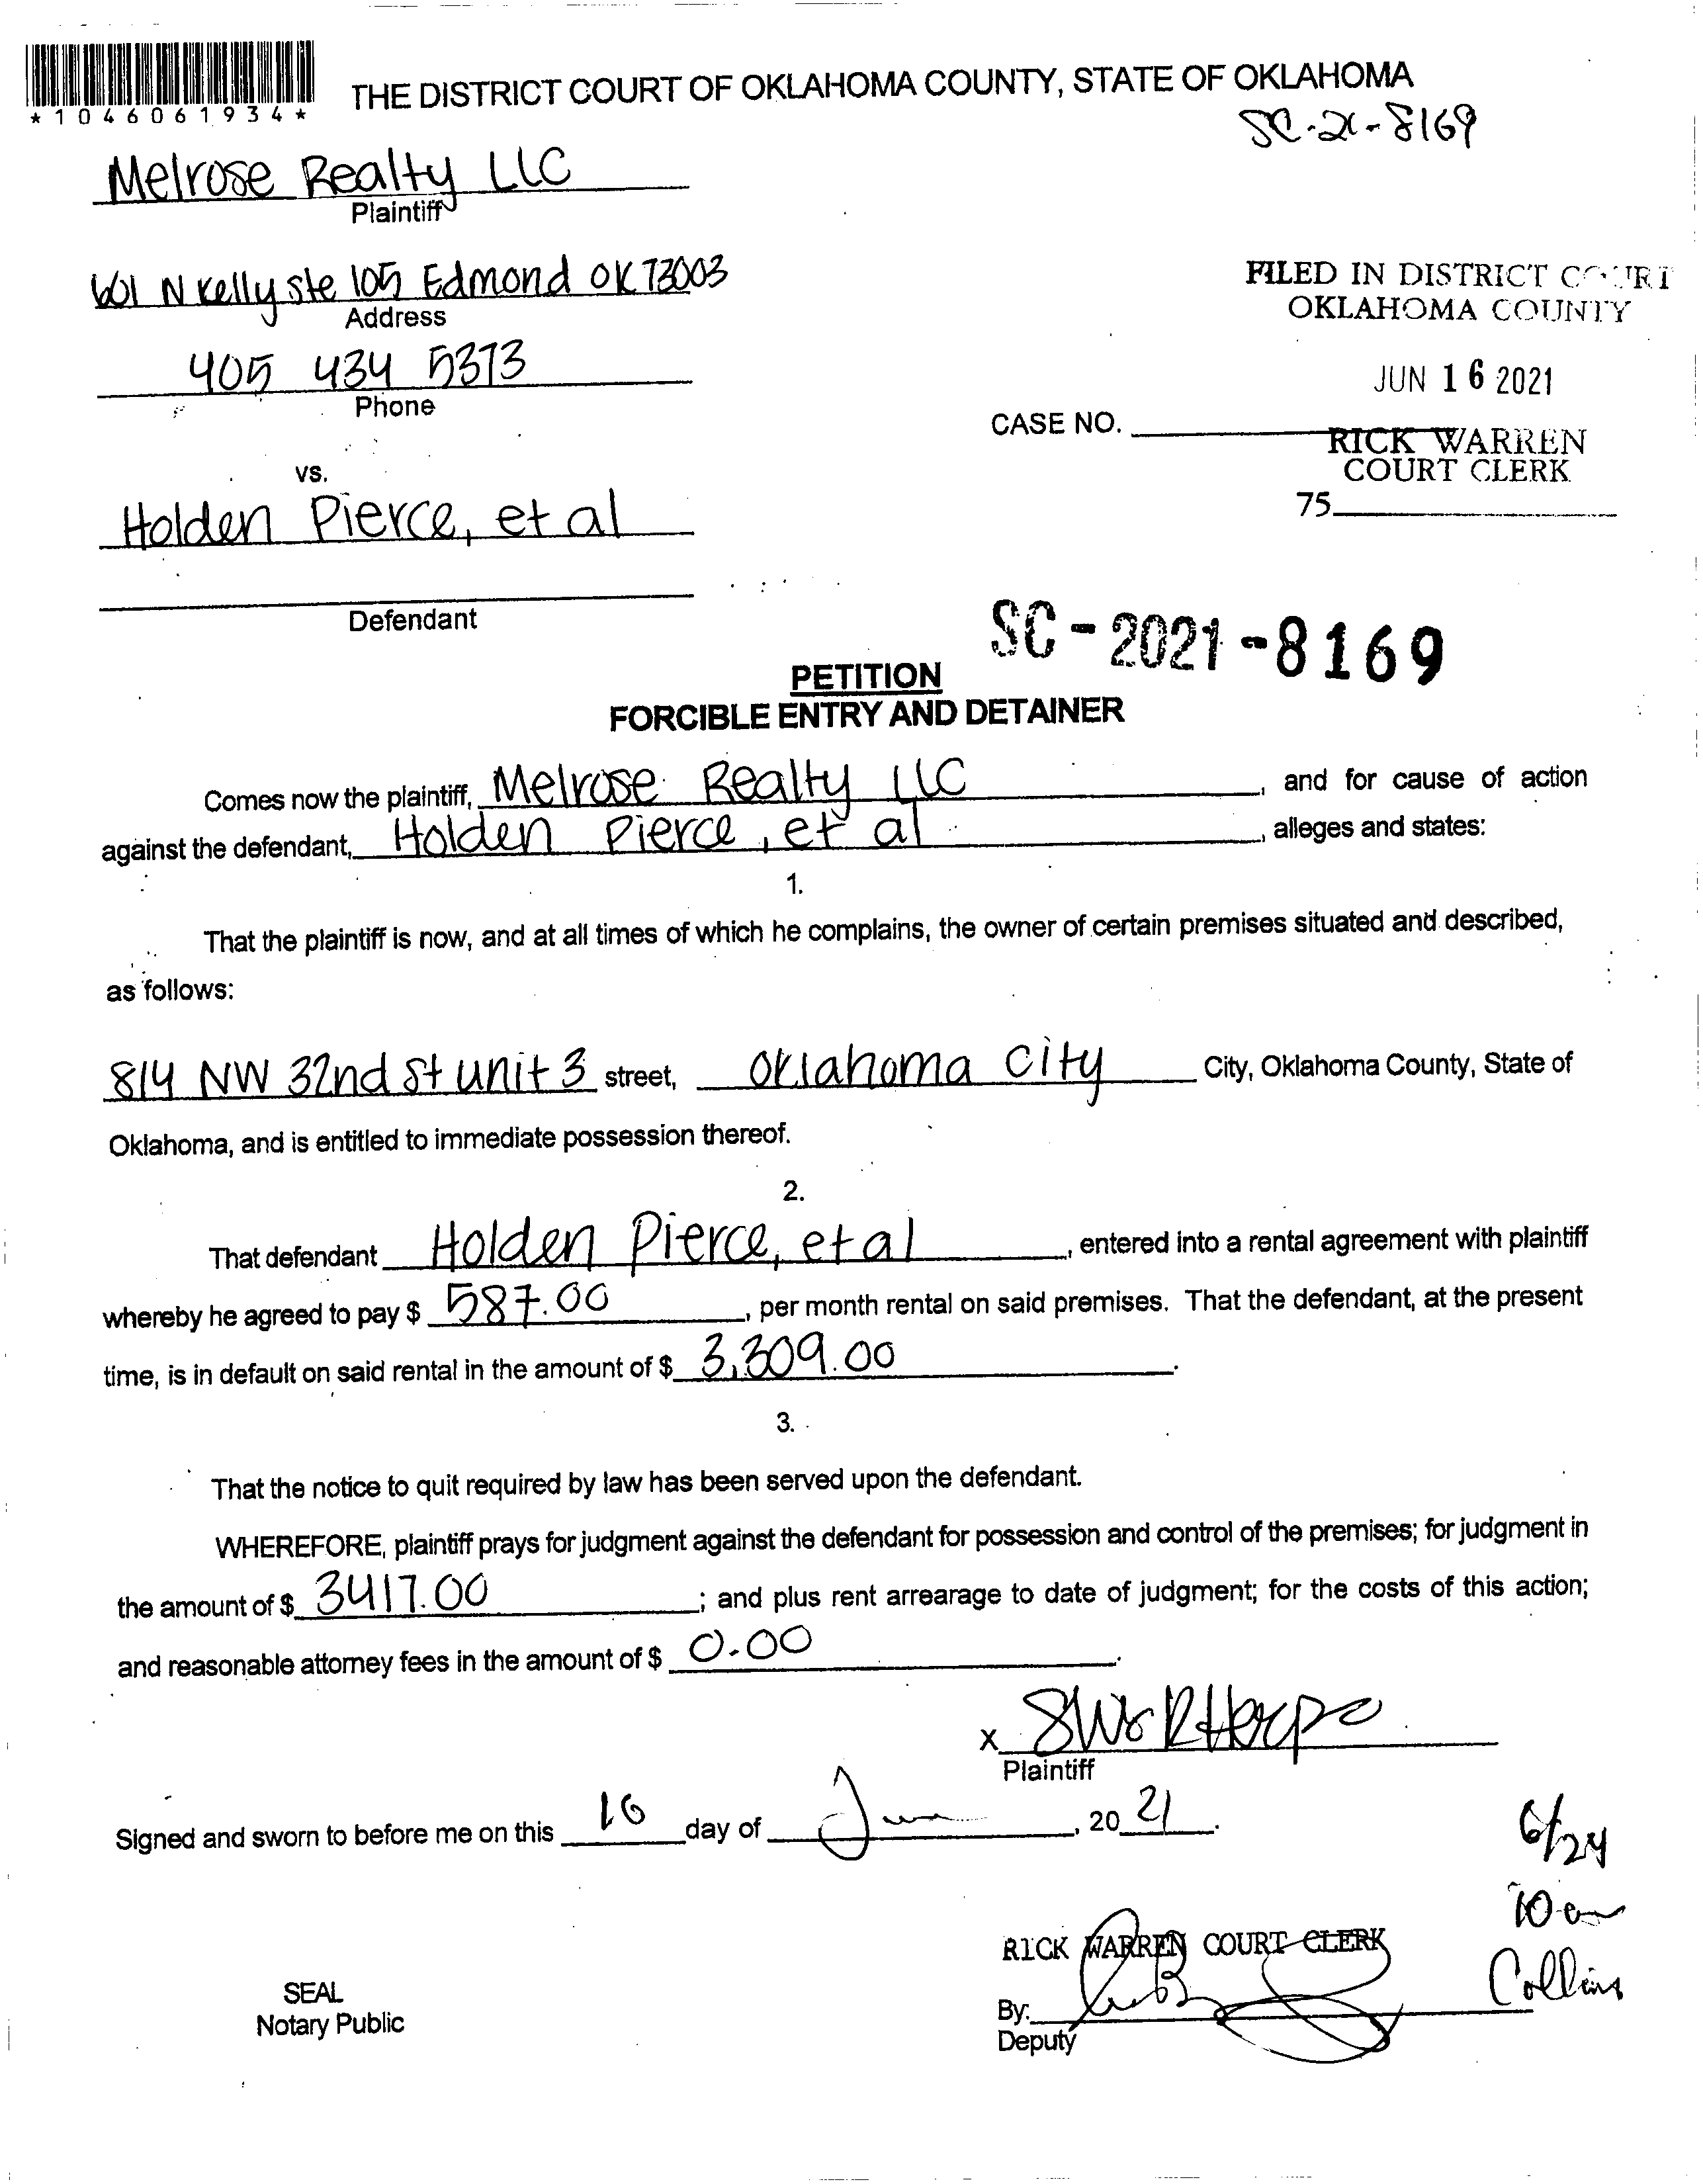 *1046061934*
THE DISTRICT COURT OF OKLAHOMA COUNTY, STATE OF OKLAHOMA
SC-21-8169
Melrose Realty LLC
Plaintiff
601 N Kelly ste 105 Edmond OK 73003
Address
405 434 5373
Phone
FILED IN DISTRICT COURT
OKLAHOMA COUNTY
JUN 16 2021
CASE NO.
RICK WARREN
COURT CLERK
75
vs.
Holden Pierce, et al
Defendant
SC-2021-8169
PETITION
FORCIBLE ENTRY AND DETAINER
Comes now the plaintiff, Melrose Realty LLC, and for cause of action
against the defendant, Holden Pierce, et al, alleges and states:
1.
That the plaintiff is now, and at all times of which he complains, the owner of certain premises situated and described,
as follows:
814 NW 32nd St unit 3 street, Oklahoma City City, Oklahoma County, State of
Oklahoma, and is entitled to immediate possession thereof.
2.
That defendant Holden Pierce, et al, entered into a rental agreement with plaintiff
whereby he agreed to pay $ 587.00, per month rental on said premises. That the defendant, at the present
time, is in default on said rental in the amount of $ 3,309.00.
3.
That the notice to quit required by law has been served upon the defendant.
WHEREFORE, plaintiff prays for judgment against the defendant for possession and control of the premises; for judgment in
the amount of $ 3417.00; and plus rent arrearage to date of judgment; for the costs of this action;
and reasonable attorney fees in the amount of $ 0.00.
X
Plaintiff
Signed and sworn to before me on this 16 day of June, 2021.
6/24
10 am
Collins
RICK WARREN COURT CLERK
By:
Deputy
SEAL
Notary Public